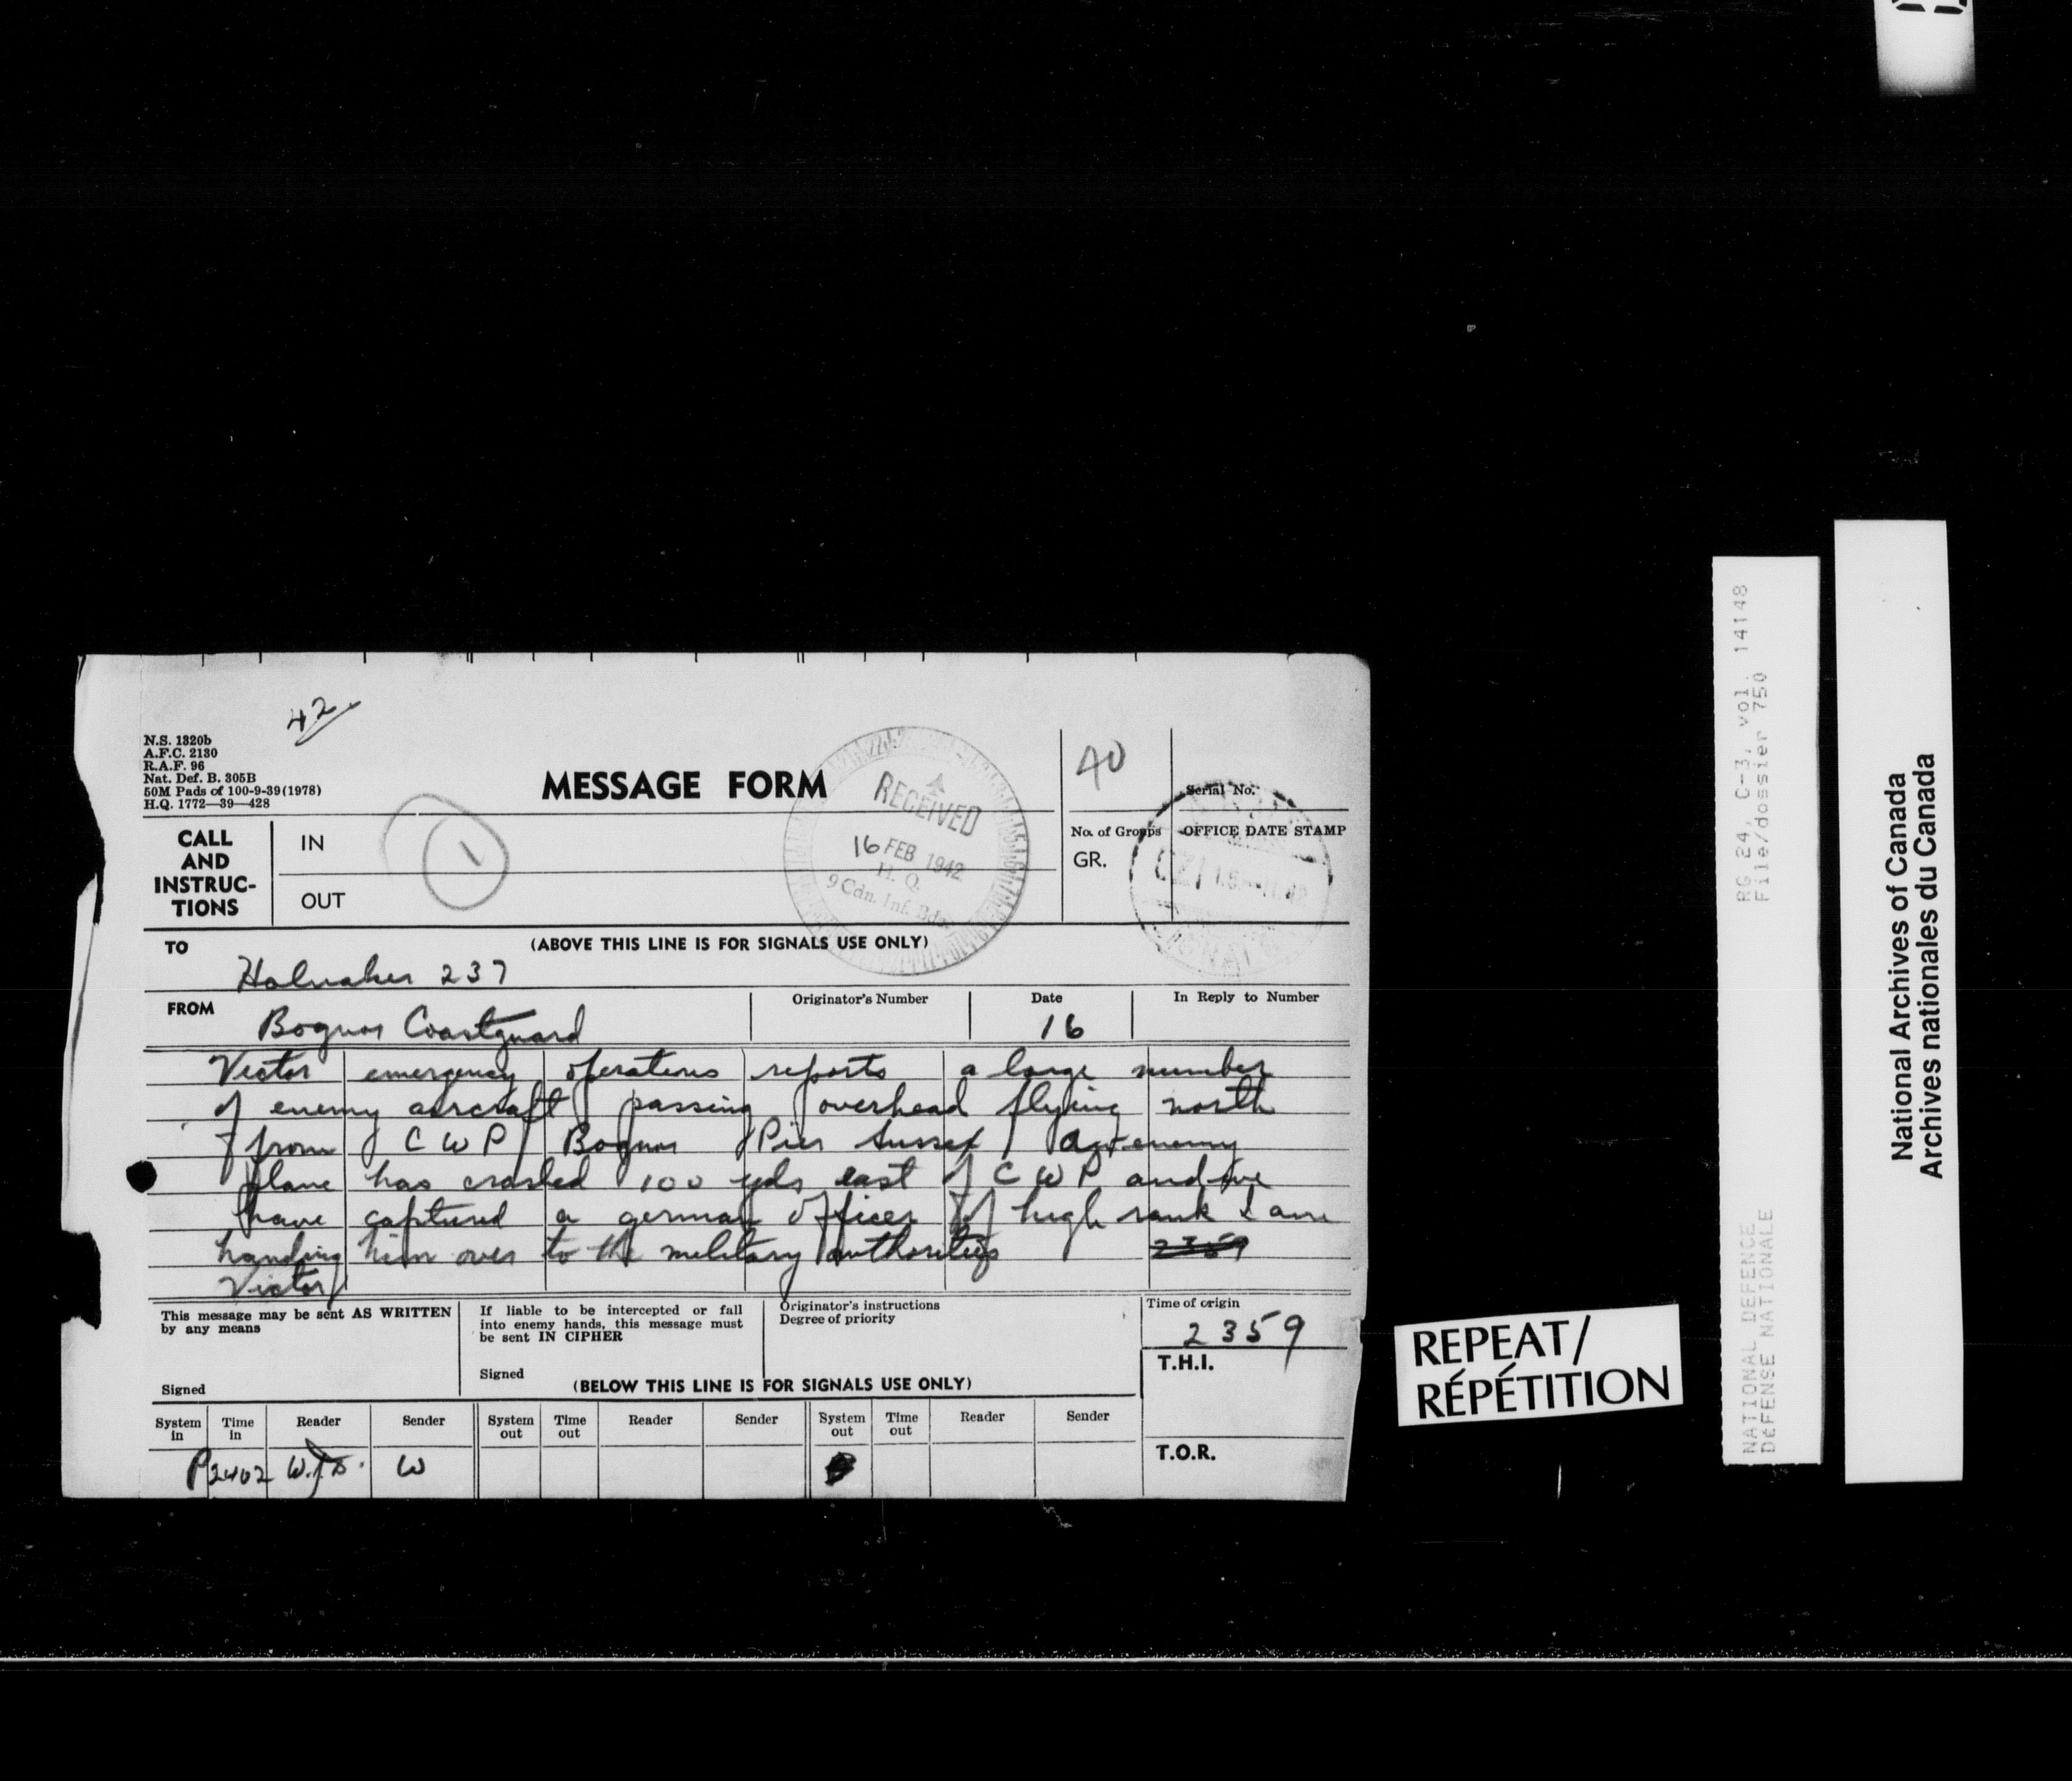 42
N.S. 1320b
A.F.C. 2130
R.A.F. 96
Nat. Def. B. 305B
50M Pads of 100-9-39(1978)
H.Q. 1772—39—428
MESSAGE FORM
RECEIVED
16 FEB 1942
H. Q.
9 Cdn. Inf. Bde.
40
Serial No.
CALL
AND
INSTRUC-
TIONS
IN
1
OUT
No. of Groups
GR.
OFFICE DATE STAMP
TO
(ABOVE THIS LINE IS FOR SIGNALS USE ONLY)
Halnaker 237
FROM
Bognor Coastguard
Originator's Number
Date
16
In Reply to Number
Victor emergency operations reports a large number
of enemy aircraft passing overhead flying north
from C W P Bognor Pier Sussex enemy
plane has crashed 100 yds east of C W P and we
have captured a german officer of high rank & am
handing him over to the military authorities 2359
Victor
This message may be sent AS WRITTEN
by any means
Signed
If liable to be intercepted or fall
into enemy hands, this message must
be sent IN CIPHER
Signed
Originator's instructions
Degree of priority
Time of origin
2359
T.H.I.
(BELOW THIS LINE IS FOR SIGNALS USE ONLY)
System in Time in Reader Sender System out Time out Reader Sender System out Time out Reader Sender
P 2402 W
T.O.R.
REPEAT/
RÉPÉTITION
RG 24, C-3, vol. 14148
File/dossier 750
NATIONAL DEFENCE
DÉFENSE NATIONALE
National Archives of Canada
Archives nationales du Canada